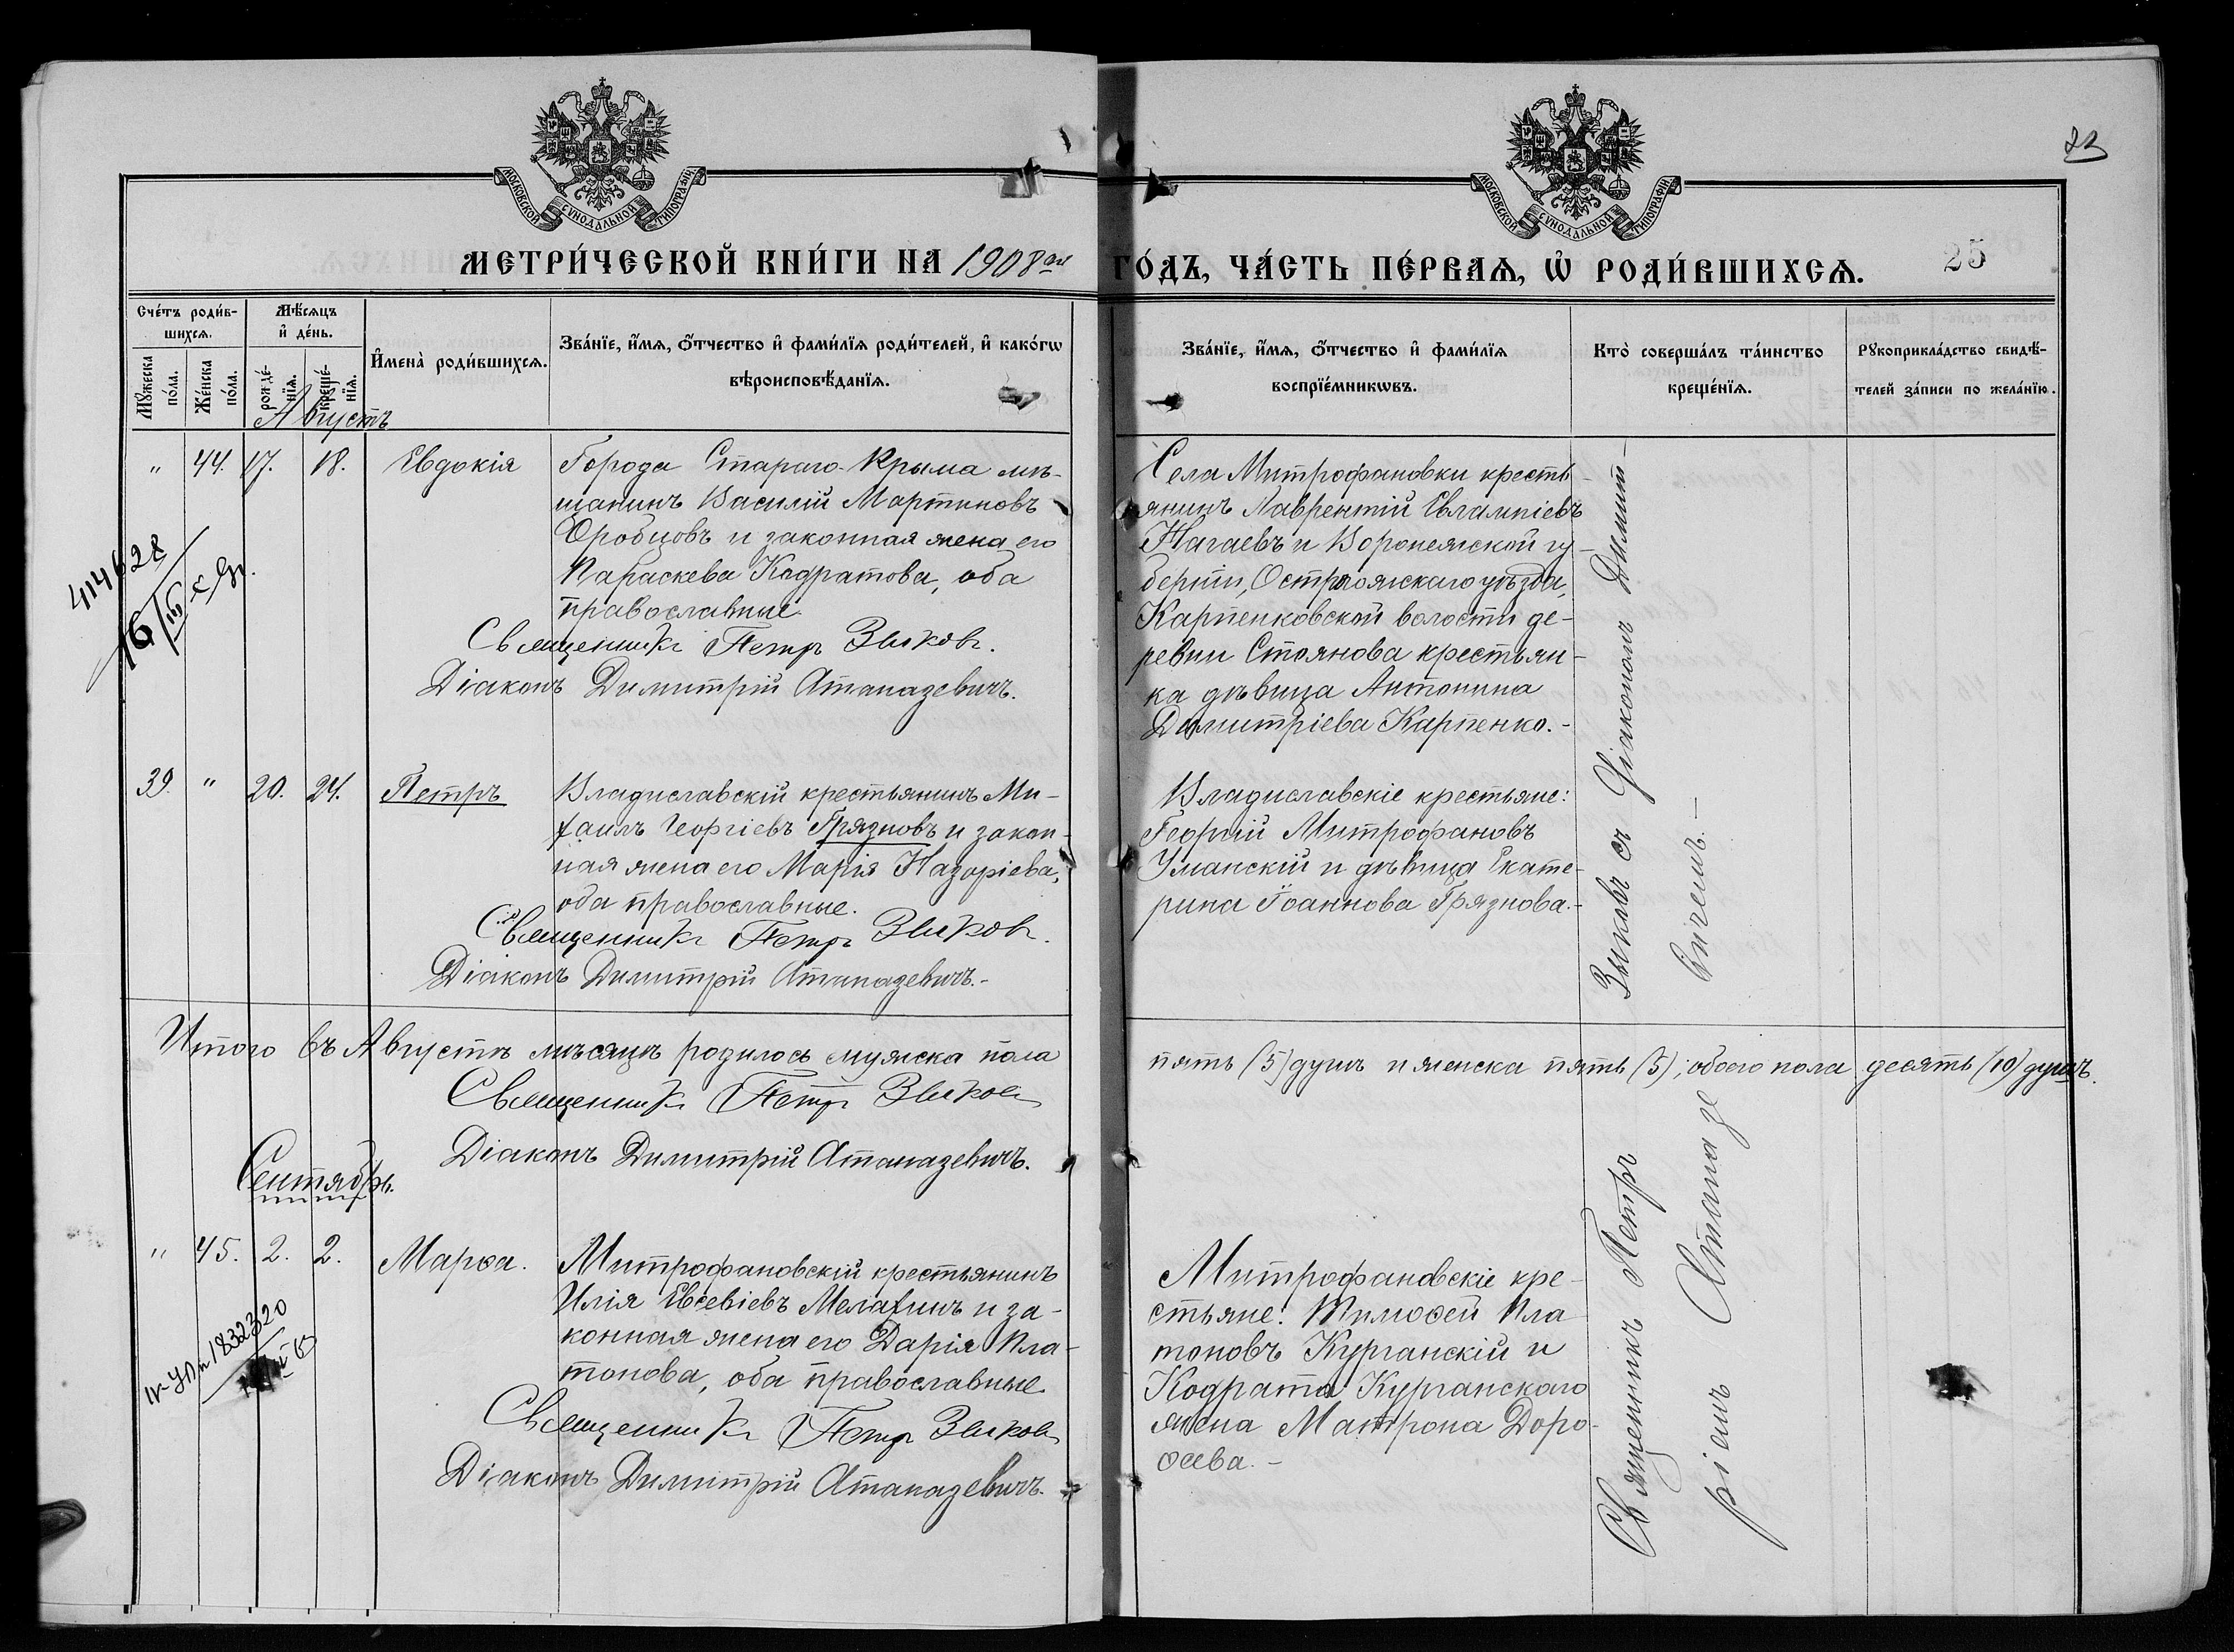 МОСКОВСКОЙ СѴНОДАЛЬНОЙ ТИПОГРАФІИ
МОСКОВСКОЙ СѴНОДАЛЬНОЙ ТИПОГРАФІИ
МЕТРИ́ЧЕСКОЙ КНИ́ГИ НА 1908 ой ГО́ДЪ, ЧА́СТЬ ПЕ́РВАѦ, Ѡ РОДИ́ВШИХСѦ.
25
Сче́тъ роди́в-
шихсѧ.
Мꙋ́жеска по́ла.
Же́нска по́ла.
Мѣ́сѧцъ
и҆ де́нь.
рожде́-нїѧ.
креще́-нїѧ.
И҆мена̀ роди́вшихсѧ.
Зва́нїе, и҆́мѧ, ѻ҆́тчество и҆ фами́лїѧ роди́телей, и҆ како́гѡ
вѣроисповѣ́данїѧ.
Зва́нїе, и҆́мѧ, ѻ҆́тчество и҆ фами́лїѧ
воспрїе́мникѡвъ.
Кто̀ соверша́лъ та́инство
креще́нїѧ.
Рꙋкоприкла́дство свидѣ́-
телей за́писи по жела́нїю.
Августъ
" 44. 17. 18. Евдокія
Города Стараго-Крыма мѣ-
щанинъ Василій Мартиновъ
Оробцовъ и законная жена его
Параскева Кодратова, оба
православные
Священникъ Петръ Зыковъ.
Діаконъ Димитрій Атаназевичъ.
Села Митрофановки кресть-
янинъ Лаврентій Евлампіевъ
Нагаевъ и Воронежской гу-
берніи, Острогожскаго уѣзда,
Карпенковской волости де-
ревни Стоянова крестьян-
ка дѣвица Антонина
Димитріева Карпенко.-
414628
39. " 20. 24. Петръ
Владиславскій крестьянинъ Ми-
хаилъ Георгіевъ Грязновъ и закон-
ная жена его Марія Назоріева,
оба православные.
Священникъ Петръ Зыковъ.
Діаконъ Димитрій Атаназевичъ.-
Владиславскіе крестьяне:
Георгій Митрофановъ
Уманскій и дѣвица Екате-
рина Іоаннова Грязнова.-
Итого въ Августѣ мѣсяцѣ родилось мужска пола пять (5) душъ и женска пять (5); обоего пола десять (10) душъ.
Священникъ Петръ Зыковъ
Діаконъ Димитрій Атаназевичъ.
Сентябрь.
" 45. 2. 2. Марѳа.
Митрофановскій крестьянинъ
Илія Евсевіевъ Мелахинъ и за-
конная жена его Дарія Пла-
тонова, оба православные.
Священникъ Петръ Зыковъ
Діаконъ Димитрій Атаназевичъ.
Митрофановскіе кре-
стьяне: Тимоѳей Пла-
тоновъ Курганскій и
Кодрата Курганскаго
жена Матрона Доро-
ѳеева.-
1832320
Священникъ Петръ Зыковъ съ Діакономъ Димит-
ріемъ Атаназевичемъ.-